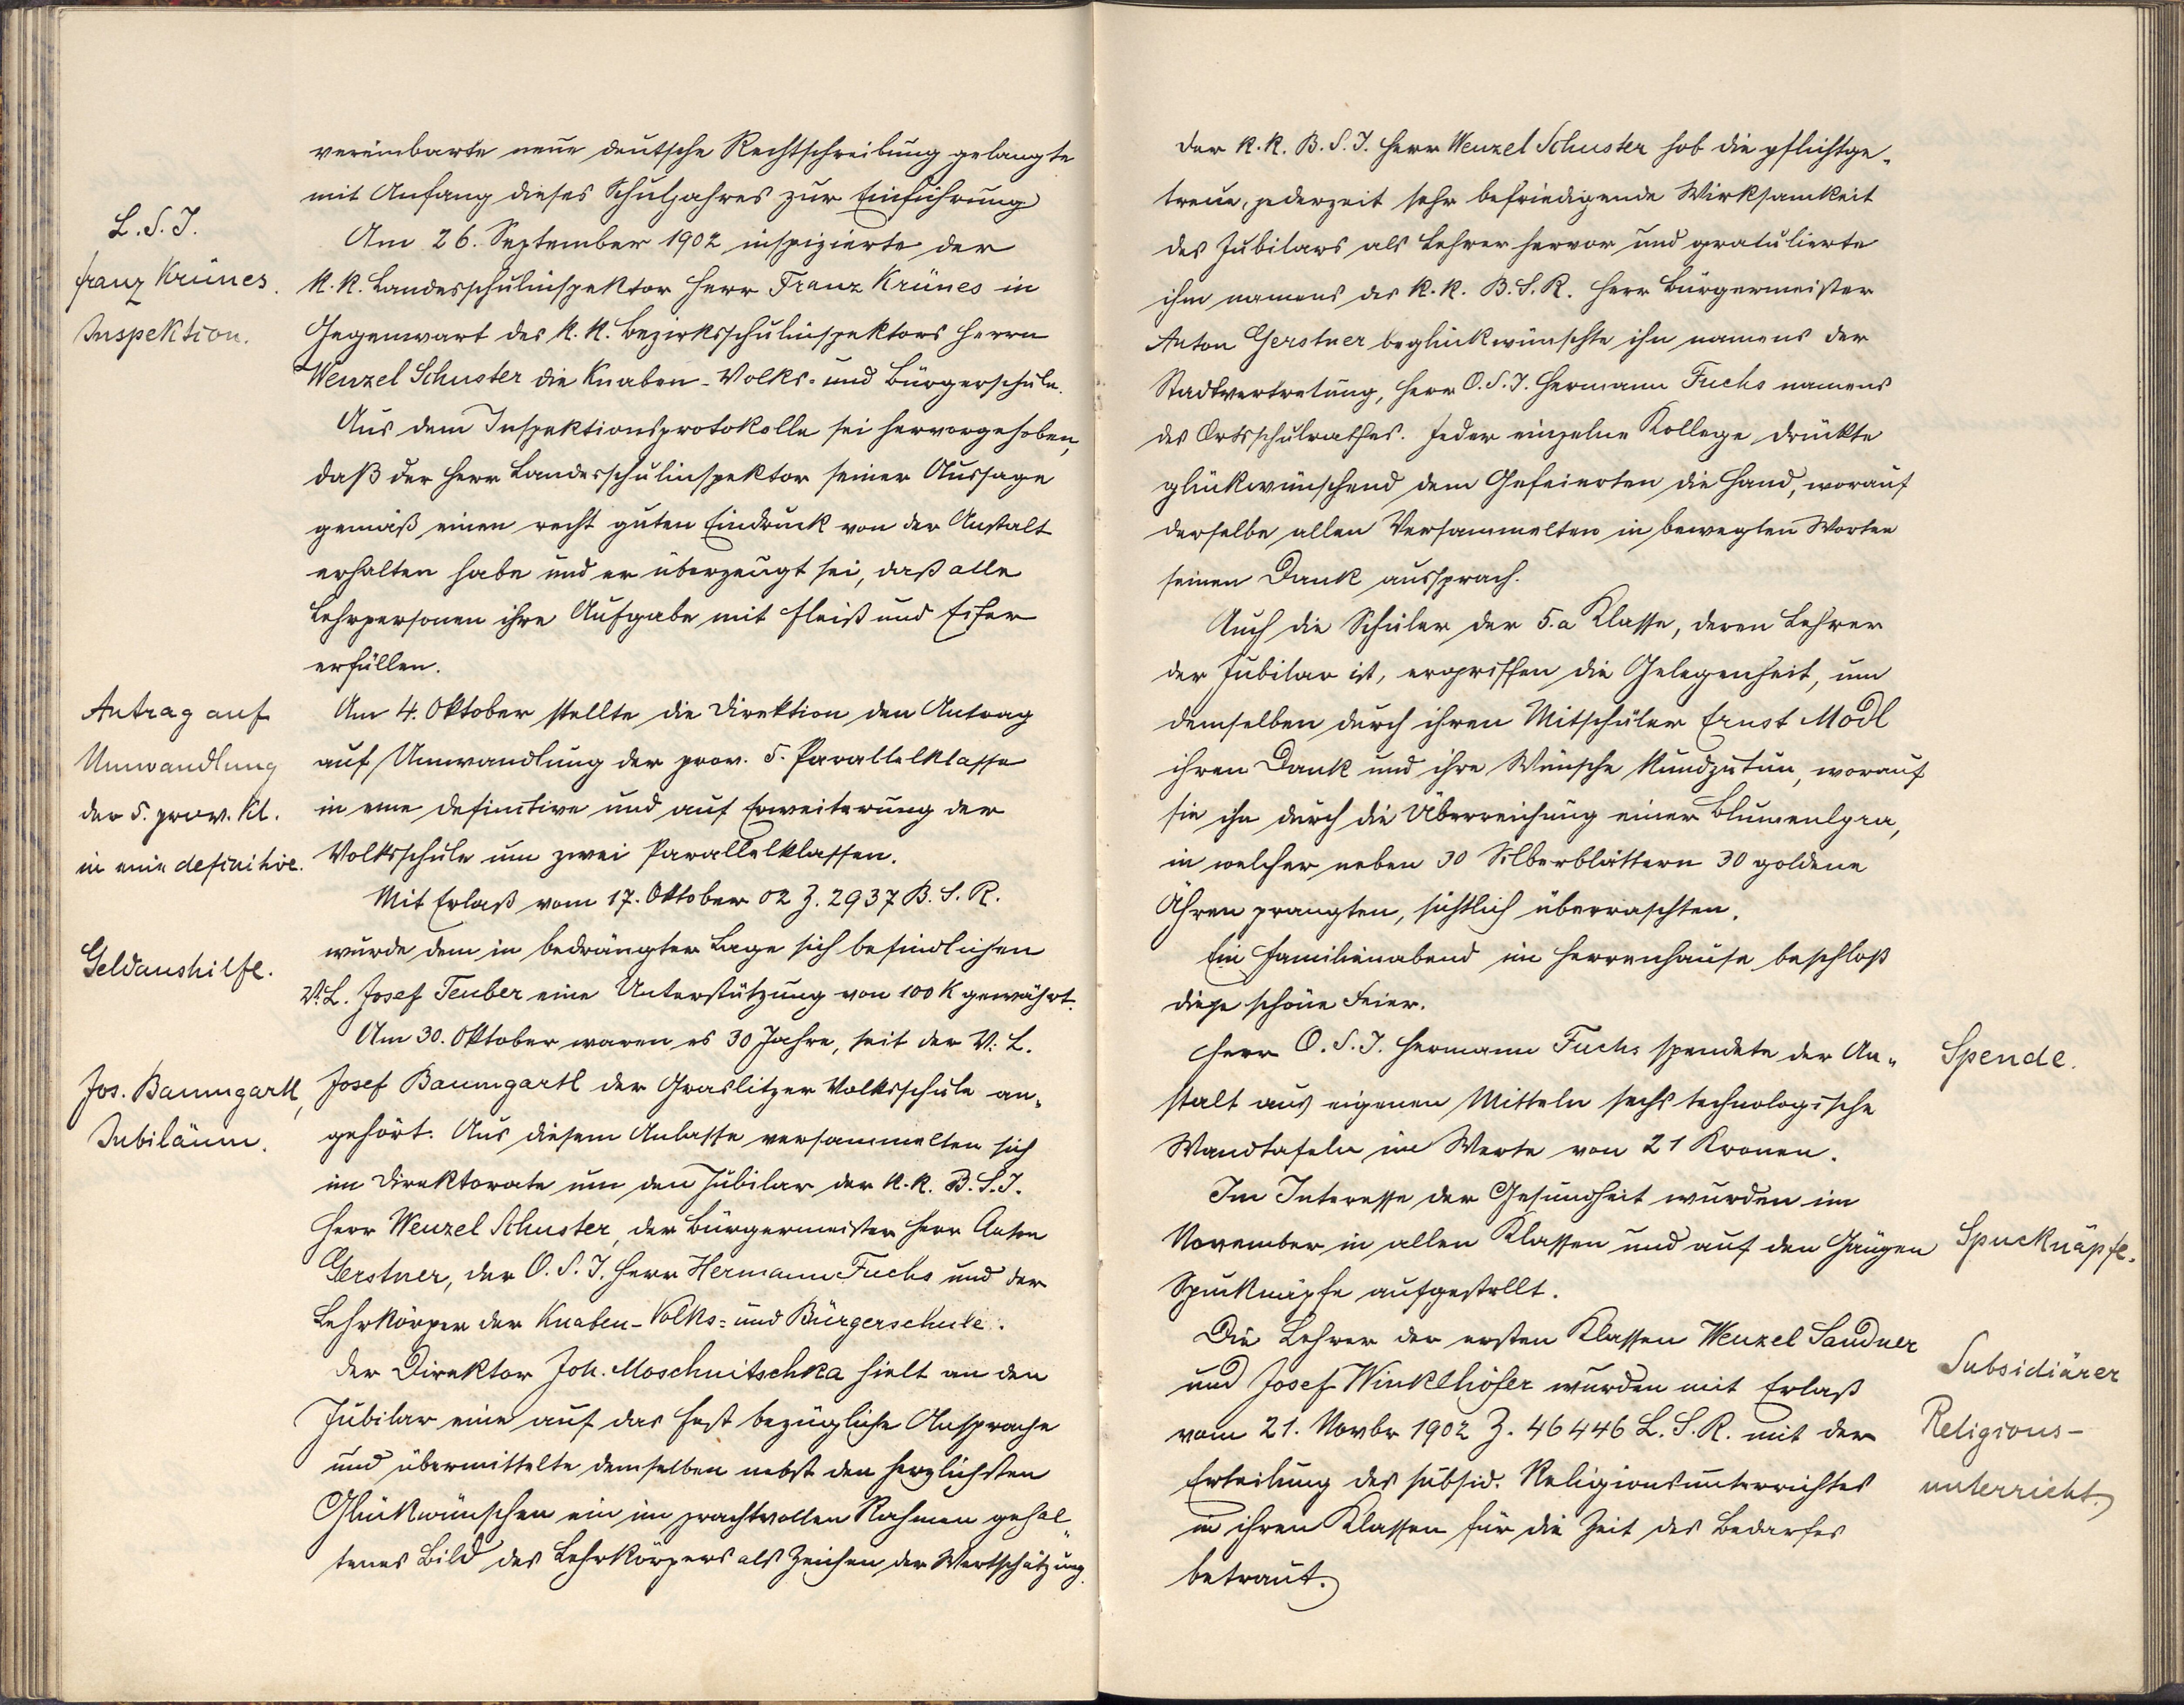 vereinbarte neue deutsche Rechtschreibung gelangte
mit Anfang dieses Schuljahres zur Einführung
L.S.I.
Franz Krünes.
Inspektion.
Am 26. September 1902 inspizierte der
k.k. Landesschulinspektor Herr Franz Krünes in
Gegenwart des k.k. Bezirksschulinspektors Herrn
Wenzel Schuster die Knaben-Volks- und Bürgerschule.
Aus dem Inspektionsprotokolle sei hervorgehoben,
daß der Herr Landesschulinspektor seiner Aussage
gemäß einen recht guten Eindruck von der Anstalt
erhalten habe und er überzeugt sei, daß alle
Lehrpersonen ihre Aufgabe mit Fleiß und Eifer
erfüllen.
Antrag auf
Umwandlung
der 5. prov. Kl.
in eine definitive.
Am 4. Oktober stellte die Direktion den Antrag
auf Umwandlung der prov. 5. Parallelklasse
in eine definitive und auf Erweiterung der
Volksschule um zwei Parallelklassen.
Mit Erlaß vom 17. Oktober 02 Z. 2937 B.S.R.
Geldaushilfe.
wurde dem in bedrängter Lage sich befindlichen
V.L. Josef Teuber eine Unterstützung von 100 K gewährt.
Am 30. Oktober waren es 30 Jahre, seit der V.L.
Jos. Baumgartl,
Jubiläum.
Josef Baumgartl der Graslitzer Volksschule an-
gehört. Aus diesem Anlasse versammelten sich
im Direktorate um den Jubilar der k.k. B.S.I.
Herr Wenzel Schuster, der Bürgermeister Herr Anton
Gerstner, der O.S.I. Herr Hermann Fuchs und der
Lehrkörper der Knaben-Volks- und Bürgerschule.
Der Direktor Joh. Moschnitschka hielt an den
Jubilar eine auf das Fest bezügliche Ansprache
und übermittelte demselben nebst den herzlichsten
Glückwünschen ein im prachtvollen Rahmen gehal-
tenes Bild des Lehrkörpers als Zeichen der Wertschätzung.
Der k.k. B.S.I. Herr Wenzel Schuster hob die pflichtge-
treue, jederzeit sehr befriedigende Wirksamkeit
des Jubilars als Lehrer hervor und gratulierte
ihm namens des k.k. B.S.R. Herr Bürgermeister
Anton Gerstner beglückwünschte ihn namens der
Stadtvertretung, Herr O.S.I. Hermann Fuchs namens
des Ortsschulrathes. Jeder einzelne Kollege drückte
glückwünschend dem Gefeierten die Hand, worauf
derselbe allen Versammelten in bewegten Worten
seinen Dank aussprach.
Auch die Schüler der 5.a Klasse, deren Lehrer
der Jubilar ist, ergriffen die Gelegenheit, um
demselben durch ihren Mitschüler Ernst Modl
ihren Dank und ihre Wünsche kundzutun, worauf
sie ihn durch die Überreichung einer Blumenlyra,
in welcher neben 30 Silberblättern 30 goldene
Ähren prangten, sichtlich überraschten.
Ein Familienabend im Herrenhause beschloß
diese schöne Feier.
Herr O.S.I. Hermann Fuchs spendete der An-
stalt aus eigenen Mitteln sechs technologische
Wandtafeln im Werte von 21 Kronen.
Spende.
Im Interesse der Gesundheit wurden im
November in allen Klassen und auf den Gängen
Spucknäpfe aufgestellt.
Spucknäpfe.
Die Lehrer der ersten Klassen Wenzel Sandner
und Josef Winkelhöfer wurden mit Erlaß
vom 21. Novbr 1902 Z. 46446 L.S.R. mit der
Erteilung des subsid. Religionsunterrichtes
in ihren Klassen für die Zeit des Bedarfes
betraut.
Subsidiärer
Religions-
unterricht.